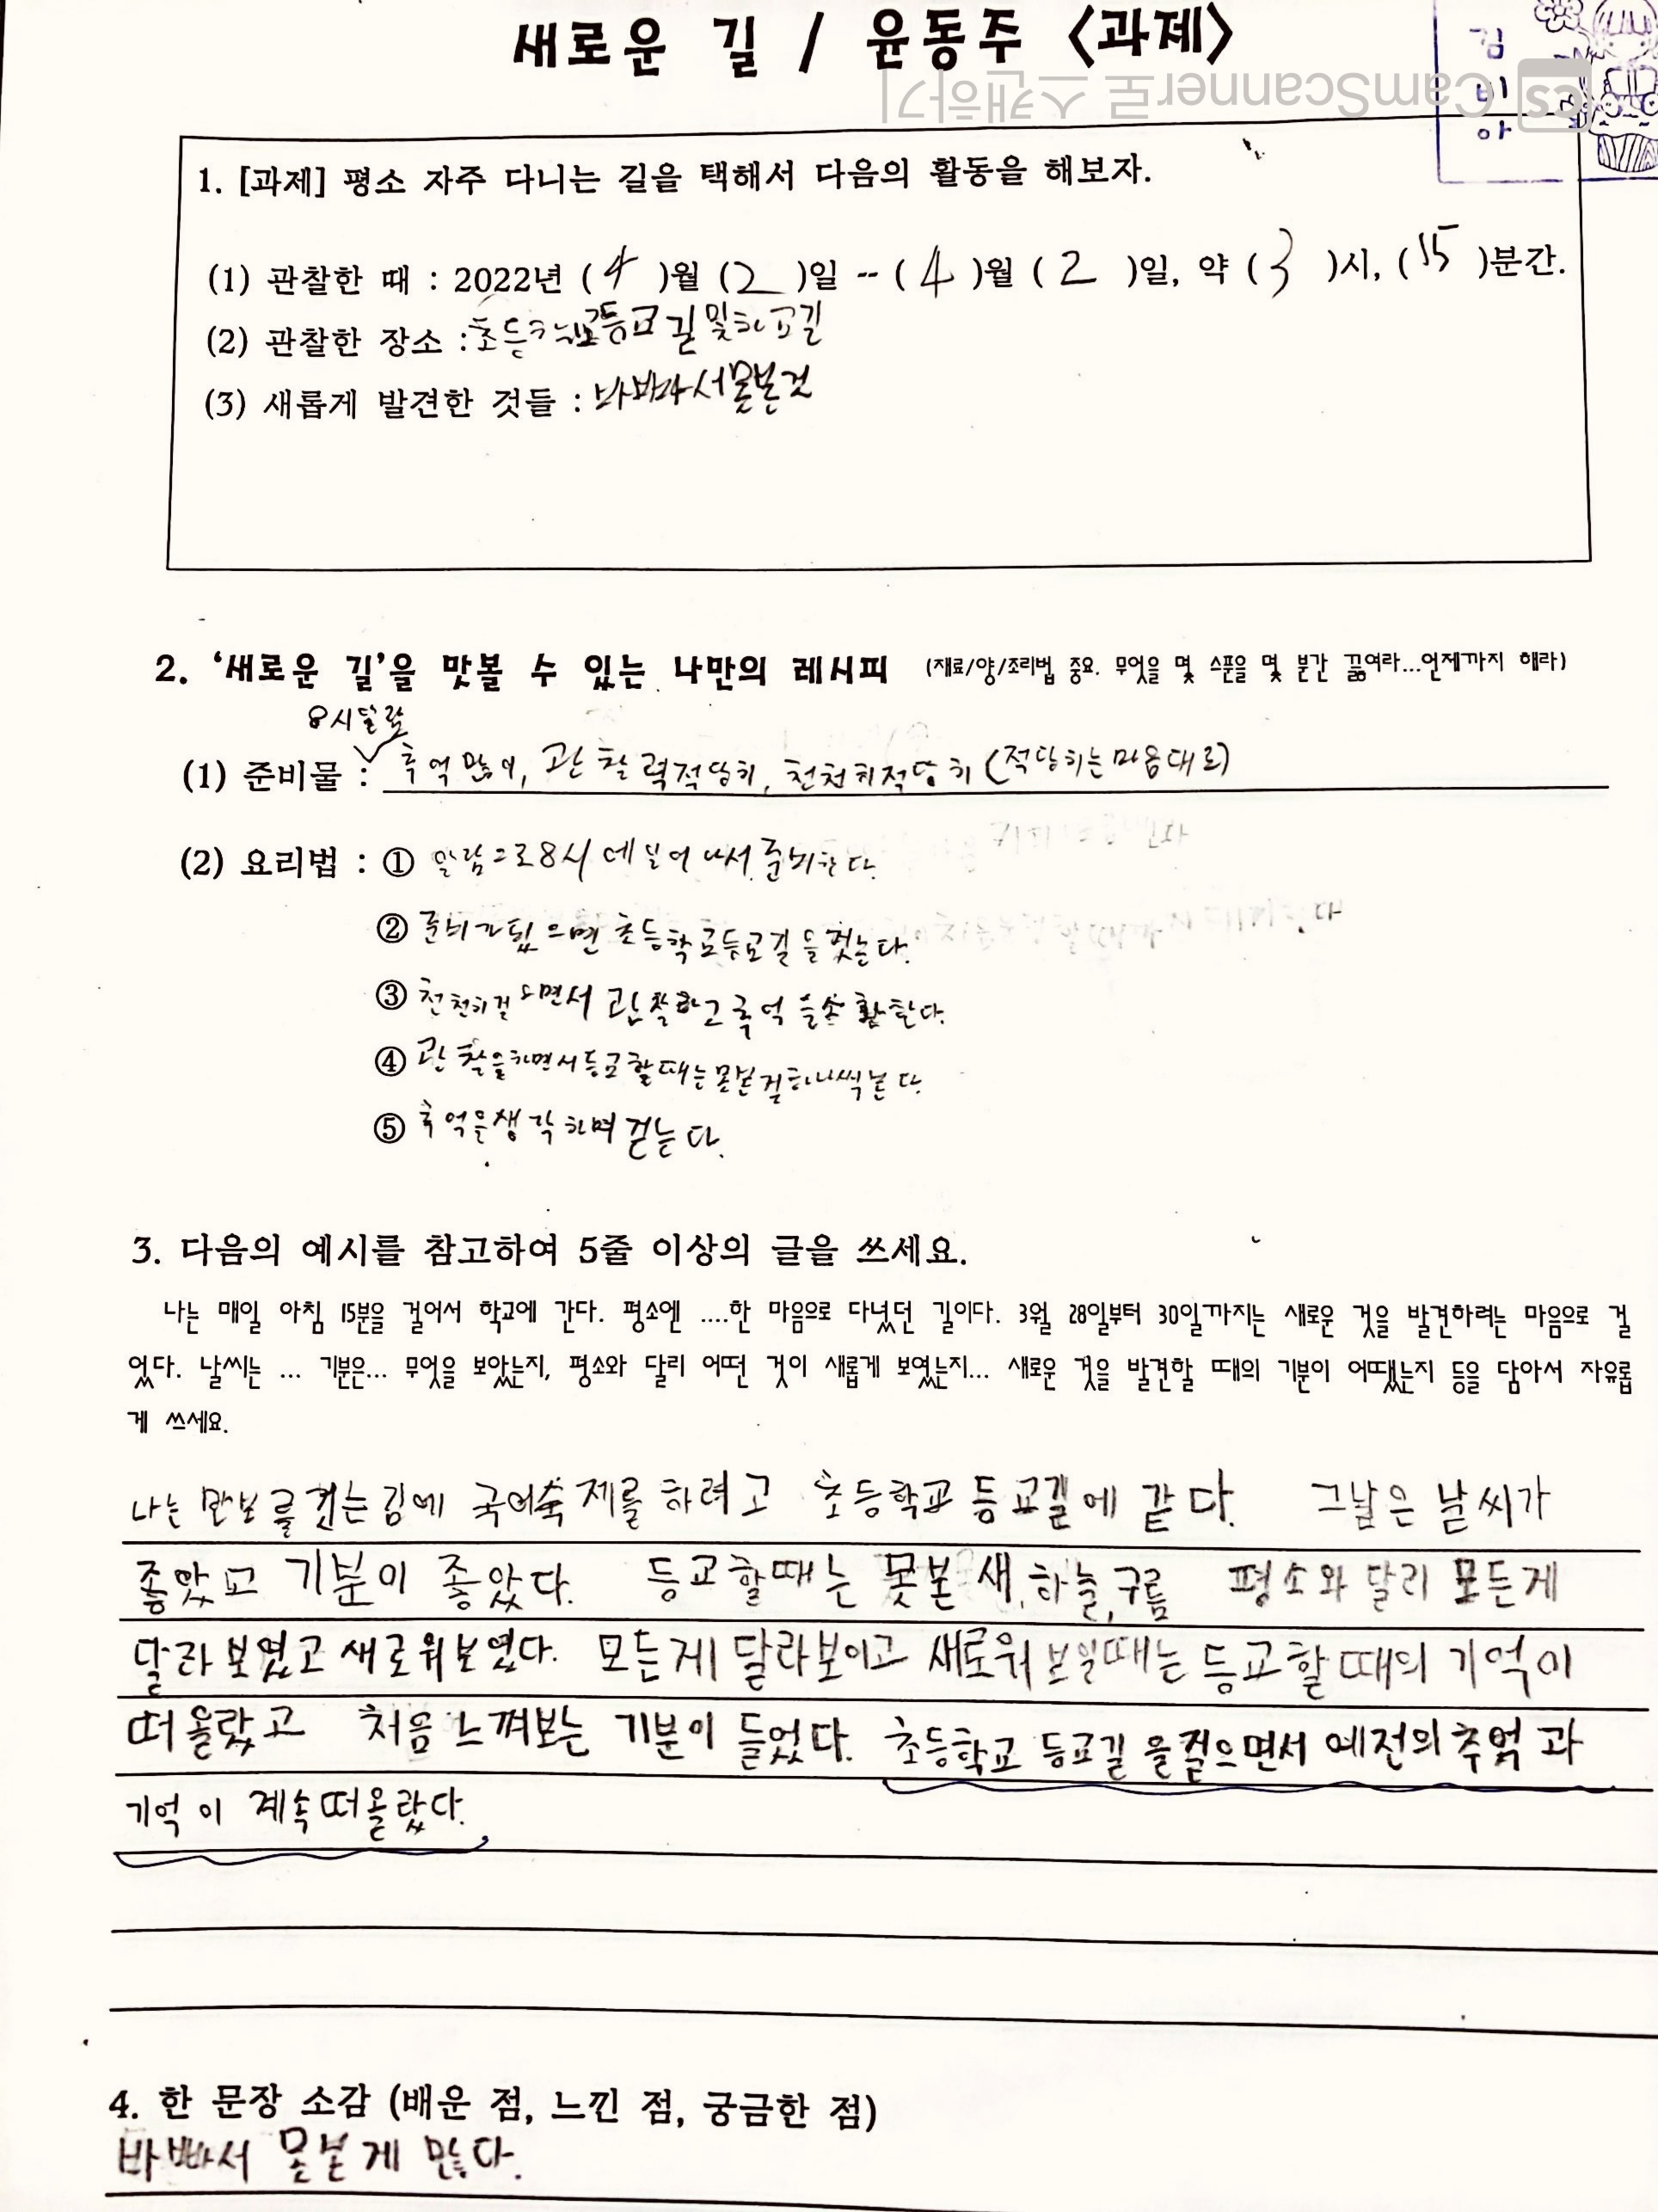 새로운 길 / 윤동주 <과제>
김비아
CS CamScanner로 스캔하기
1. [과제] 평소 자주 다니는 길을 택해서 다음의 활동을 해보자.
(1) 관찰한 때 : 2022년 ( 4 )월 (2 )일 -- ( 4 )월 ( 2 )일, 약 ( 3 )시, (15 )분간.
(2) 관찰한 장소 : 초등학교등교길및하교길
(3) 새롭게 발견한 것들 : 바빠서못본것
2. '새로운 길'을 맛볼 수 있는 나만의 레시피 (재료/양/조리법 중요. 무엇을 몇 스푼을 몇 분간 끓여라...언제까지 해라)
8시알람
(1) 준비물 : 추억많이, 관찰력적당히, 천천히적당히 (적당히는마음대로)
(2) 요리법 : ① 알람으로8시에일어나서준비한다.
② 준비가됬으면 초등학교등교길을 걷는다.
③ 천천히걸으면서 관찰하고 추억을 한다.
④ 관찰을하면서등교할때는못본걸하나씩본다.
⑤ 추억을생각하며 걷는다.
3. 다음의 예시를 참고하여 5줄 이상의 글을 쓰세요.
나는 매일 아침 15분을 걸어서 학교에 간다. 평소엔 ....한 마음으로 다녔던 길이다. 3월 28일부터 30일까지는 새로운 것을 발견하려는 마음으로 걸
었다. 날씨는 ... 기분은... 무엇을 보았는지, 평소와 달리 어떤 것이 새롭게 보였는지... 새로운 것을 발견할 때의 기분이 어땠는지 등을 담아서 자유롭
게 쓰세요.
나는 만보를 걷는김에 국어숙제를 하려고 초등학교 등교길에 같다. 그날은 날씨가
좋았고 기분이 좋았다. 등교할때는 못본 새,하늘,구름 평소와 달리 모든게
달라보였고 새로워보였다. 모든게 달라보이고 새로워 보일때는 등교할때의 기억이
떠올랐고 처음 느껴보는 기분이 들었다. 초등학교 등교길을 걸으면서 예전의 추억과
기억이 계속떠올랐다.
4. 한 문장 소감 (배운 점, 느낀 점, 궁금한 점)
바빠서 못본게 많다.